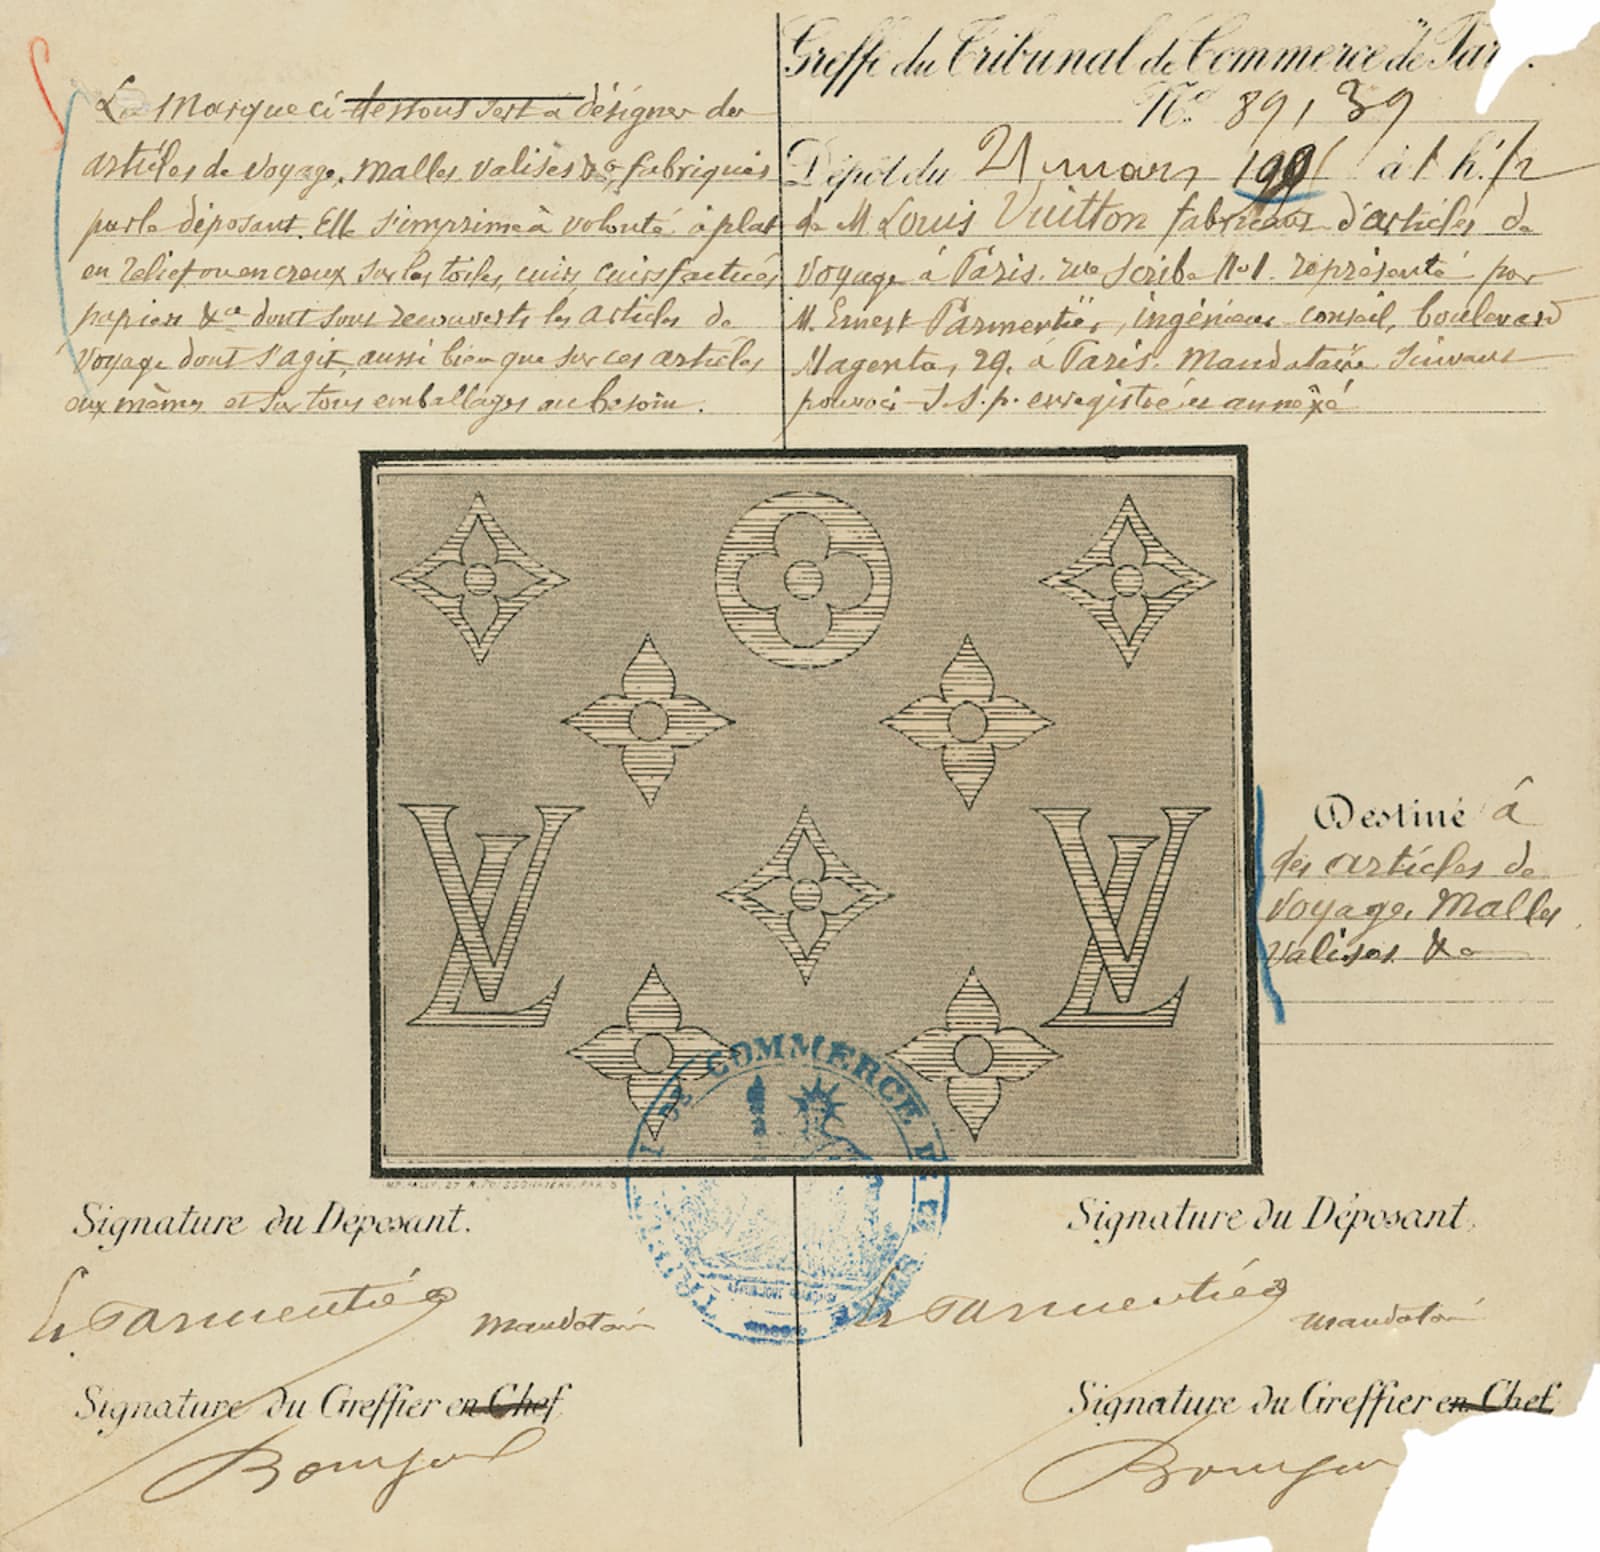 La Marque ci dessous sert à désigner des
articles de Voyage, Malles, Valises &a, fabriqués
par le déposant. Elle s'imprime à volonté à plat
en relief ou en creux sur les toiles, cuirs, cuirs factices,
papiers &a dont sont recouverts les articles de
Voyage dont s'agit, aussi bien que sur ces articles
eux mêmes et sur tous emballages au besoin.
Greffe du Tribunal de Commerce de Par
No 89,39
Dépôt du 21 mars à 1 h. 1/2
de M Louis Vuitton fabricant d'articles de
Voyage à Paris. rue Scribe No 1. représenté par
M. Ernest Parmentier, ingénieur conseil, boulevard
Magenta, 29. à Paris. Mandataire suivant
pouvoir S.S.p. enregistré et annexé
LV LV
Destiné à
des articles de
Voyage, Malles
Valises &a
COMMERCE
Signature du Déposant.
Signature du Déposant.
E. Parmentier Mandataire
E. Parmentier Mandataire
Signature du Greffier en Chef
Signature du Greffier en Chef